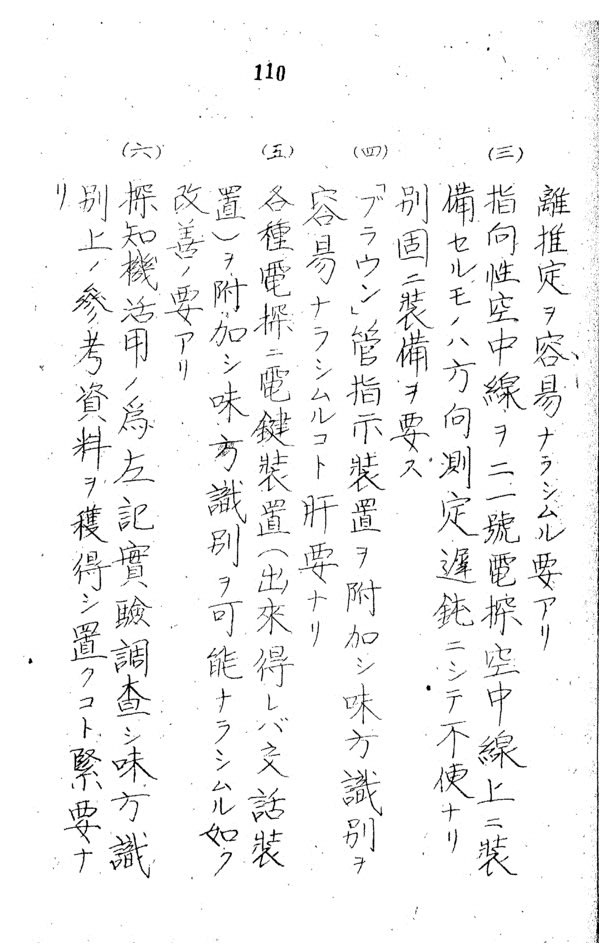 110
離推定ヲ容易ナラシムル要アリ
(三)指向性空中線ヲ二一號電探空中線上ニ裝
備セルモノハ方向測定遲鈍ニシテ不便ナリ
別固ニ裝備ヲ要ス
(四)「ブラウン」管指示裝置ヲ附加シ味方識別ヲ
容易ナラシムルコト肝要ナリ
(五)各種電探ニ電鍵裝置(出來得レバ交話裝
置)ヲ附加シ味方識別ヲ可能ナラシムル如ク
改善ノ要アリ
(六)探知機活用ノ爲左記實驗調査シ味方識
別上ノ參考資料ヲ獲得シ置クコト緊要ナ
リ